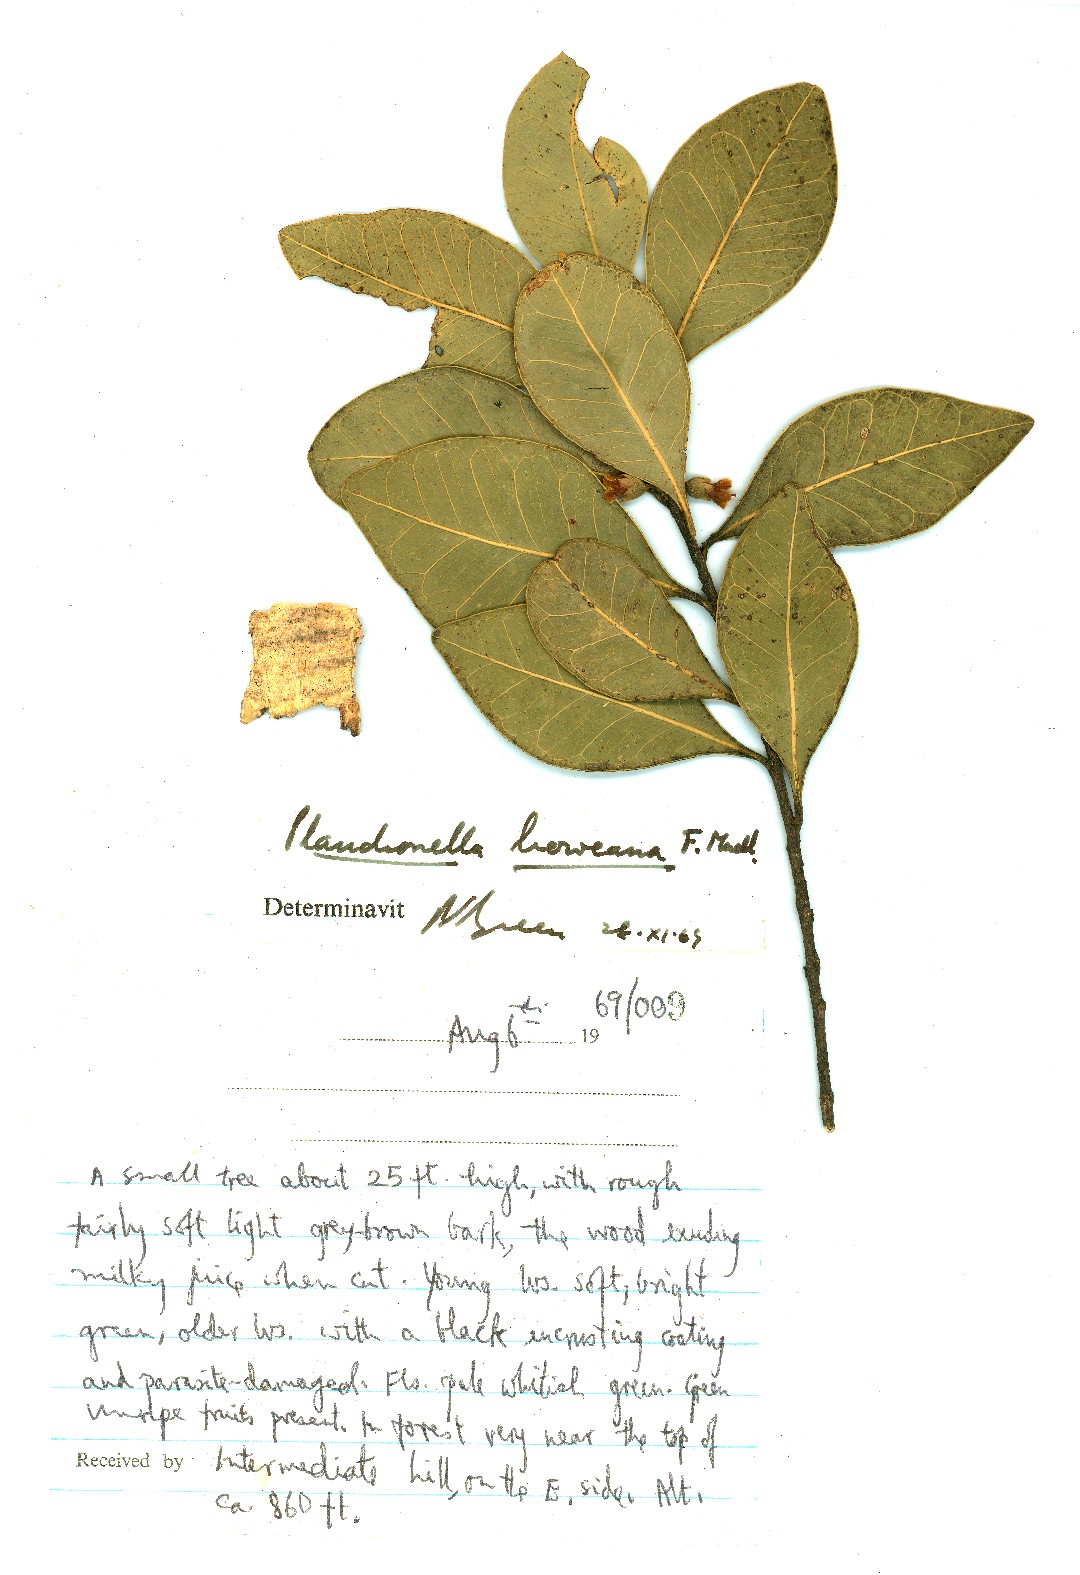 Planchonella howeana F. Muell.
Determinavit PSGreen 26.XI.69
Aug 6th 19 69/009
A small tree about 25 ft. high, with rough
fairly soft light grey-brown bark, the wood exuding
milky juice when cut. Young lvs. soft, bright
green, older lvs. with a black encrusting coating
and parasite-damaged. Fls. pale whitish green. Green
unripe fruits present. In forest very near the top of
Received by Intermediate hill, on the E. side. Alt.
ca. 860 ft.